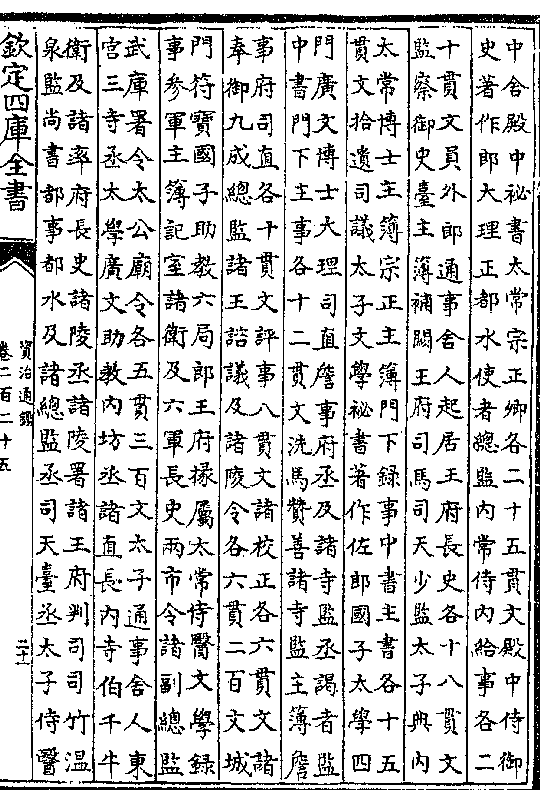 中舍殿中祕書太常宗正卿各二十五貫文殿中侍御
史著作郎大理正都水使者總監内常侍内給事各二
十貫文員外郎通事舍人起居王府長史各十八貫文
監察御史臺主簿補闕王府司馬司天少監太子典内
太常博士主簿宗正主簿門下録事中書主書各十五
貫文拾遺司議太子文學祕書著作佐郎國子太學四
門廣文博士大理司直詹事府丞及諸寺監丞謁者監
中書門下主事各十二貫文洗馬贊善諸寺監主簿詹
事府司直各十貫文評事八貫文諸校正各六貫文諸
奉御九成總監諸王諮議及諸陵令各六貫二百文城
門符寶國子助教六局郎王府掾屬太常侍醫文學録
事參軍主簿記室諸衛及六軍長史兩市令諸副總監
武庫署令太公廟令各五貫三百文太子通事舍人東
宫三寺丞太學廣文助教内坊丞諸直長内寺伯千牛
衛及諸率府長史諸陵丞諸陵署諸王府判司司竹温
泉監尚書都事都水及諸總監丞司天臺丞太子侍醫
欽定四庫全書
資治通鑑
卷二百二十五
二十一